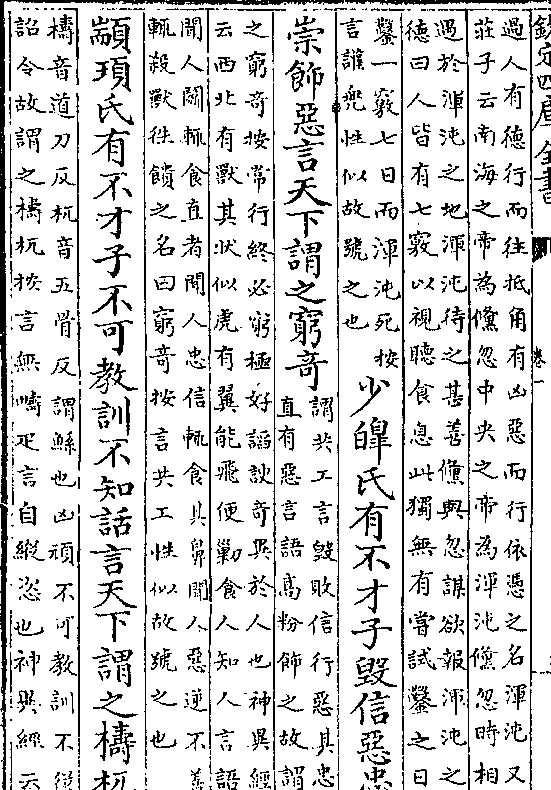 欽定四庫全書
卷一
過人有德行而往抵角有凶惡而行依憑之名渾沌又
莊子云南海之帝為儵忽中央之帝為渾沌儵忽時相
遇於渾沌之地渾沌待之甚善儵與忽謀欲報渾沌之
德曰人皆有七竅以視聽食息此獨無有嘗試鑿之日
鑿一竅七日而渾沌死按
言讙兜性似故號之也
少皥氏有不才子毀信惡忠
崇飾惡言天下謂之窮奇
謂共工言毀敗信行惡其忠
直有惡言語高粉飾之故謂
之窮奇按常行終必窮極好諂諛奇異於人也神異經
云西北有獸其狀似虎有翼能飛便勦食人知人言語
聞人鬬輒食直者聞人忠信輒食其鼻聞人惡逆不善
輒殺獸往饋之名曰窮奇按言共工性似故號之也
顓頊氏有不才子不可教訓不知話言天下謂之檮杌
檮音道刀反杌音五骨反謂鯀也凶頑不可教訓不從
詔令故謂之檮杌按言無疇匹言自縱恣也神異經云